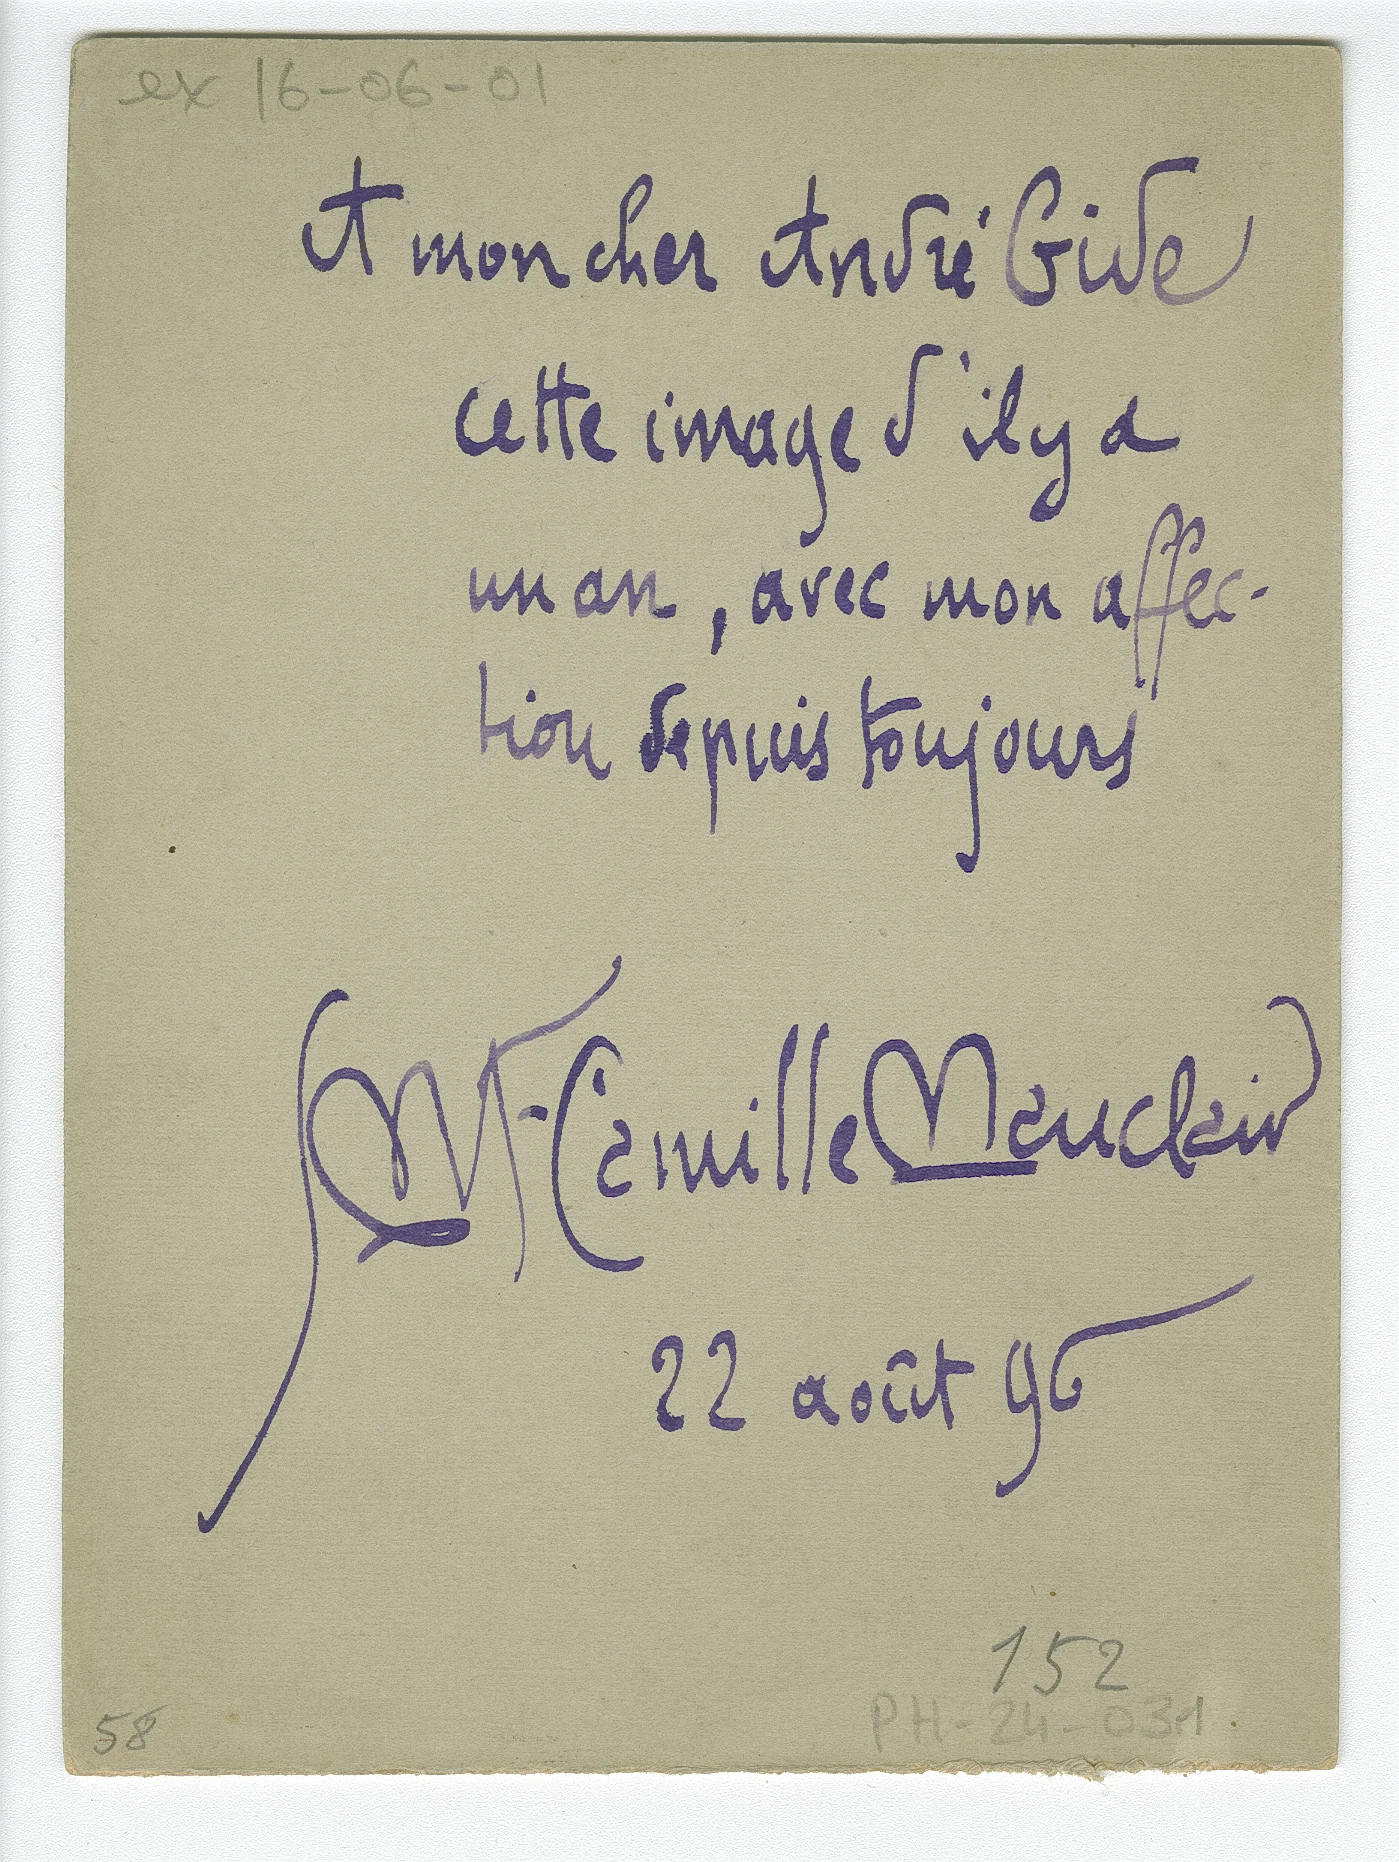 ex 16-06-01
A mon cher André Gide
cette image d'il y a
un an, avec mon affec-
tion depuis toujours
Camille Mauclair
22 août 96
152
PH-24-031
58